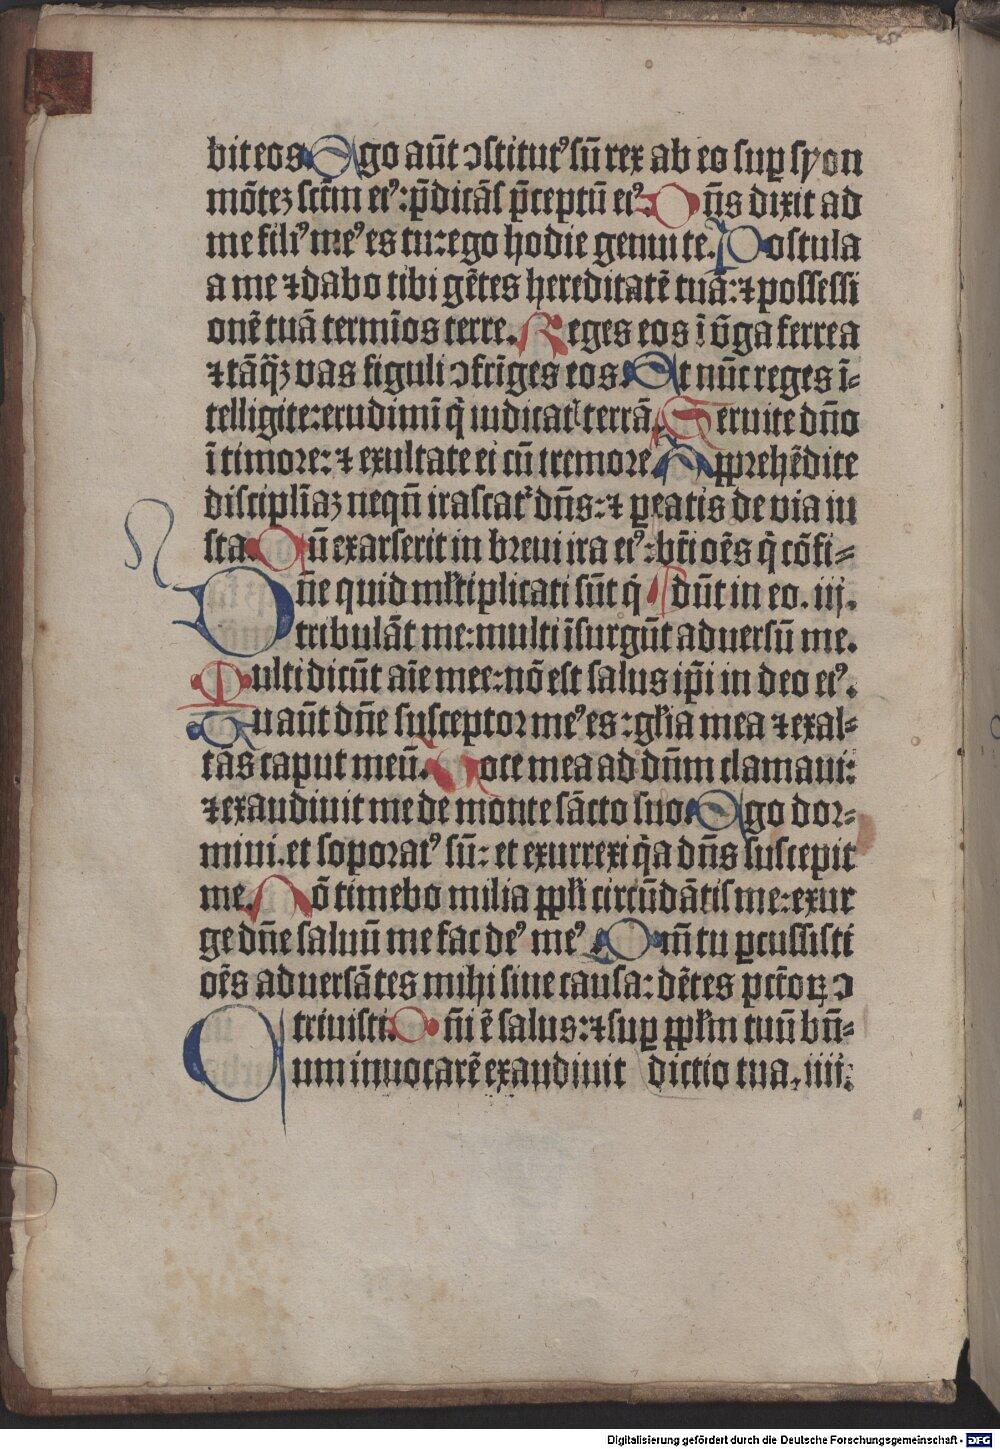 bit eos. Ego aūt ↄstitutꝰ sū rex ab eo suꝑ syon
mōteꝫ sctm̄ eiꝰ: p̄dicās p̄ceptū eiꝰ. Dn̄s dixit ad
me filiꝰ meꝰ es tu: ego hodie genui te. Postula
a me ⁊ dabo tibi gētes hereditatē tuā: ⁊ possessi
onē tuā termīos terre. Reges eos ī v̄ga ferrea
⁊ tāq̄ꝫ vas figuli ↄfrīges eos. Et nūc reges ī-
telligite: erudimī q̇ iudicatꝭ terrā. Seruite dn̄o
ī timore: ⁊ exultate ei cū tremore. Apprehēdite
disciplīaꝫ neqn̄ irascat᷑ dn̄s: ⁊ ꝑeatis de via iu
sta. Cū exarserit in breui ira eiꝰ: bt̄i oēs q̇ cōfi-
Dn̄e quid mĺtiplicati sūt q̇ dūt in eo. iij.
tribulāt me: multi īsurgūt aduersū me.
Multi dicūt aīe mee: nō est salus ip̄i in deo eiꝰ.
Tu aūt dn̄e susceptor meꝰ es: gĺia mea ⁊ exal-
tās caput meū. Voce mea ad dn̄m clamaui:
⁊ exaudiuit me de monte sācto suo. Ego dor-
miui. et soporatꝰ sū: et exurrexi q̇a dn̄s suscepit
me. Nō timebo milia ppĺi circūdātis me: exur
ge dn̄e saluū me fac deꝰ meꝰ. Qm̄ tu ꝑcussisti
oēs aduersātes mihi sine causa: dētes pctōꝝ ↄ
triuisti. Dn̄i ē salus: ⁊ suꝑ ppĺm tuū bn̄-
Cum inuocarē exaudiuit dictio tua. iiij.
Digitalisierung gefördert durch die Deutsche Forschungsgemeinschaft - DFG